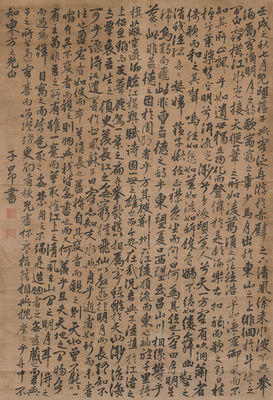 壬戌之秋七月既望蘇子與客泛舟遊於赤壁之下清風徐來水波不興舉
酒屬客誦明月之詩歌窈窕之章少焉月出於東山之上徘徊於斗牛之
間白露橫江水光接天縱一葦之所如凌萬頃之茫然浩浩乎如馮虛御風而不
知其所止飄飄乎如遺世獨立羽化而登仙於是飲酒樂甚扣舷而歌之歌曰
桂棹兮蘭槳擊空明兮泝流光渺渺兮予懷望美人兮天一方客有吹洞簫者
倚歌而和之其聲嗚嗚然如怨如慕如泣如訴餘音嫋嫋不絕如縷舞幽壑之
潛蛟泣孤舟之嫠婦蘇子愀然正襟危坐而問客曰何為其然也客曰月明星
稀烏鵲南飛此非曹孟德之詩乎東望夏口西望武昌山川相繆鬱乎
蒼蒼此非孟德之困於周郎者乎方其破荊州下江陵順流而東也舳艫千里旌旗
蔽空釃酒臨江橫槊賦詩固一世之雄也而今安在哉況吾與子漁樵於江渚之
上侶魚蝦而友麋鹿駕一葉之扁舟舉匏樽以相屬寄蜉蝣於天地渺滄海
之一粟哀吾生之須臾羨長江之無窮挾飛仙以遨遊抱明月而長終知不
可乎驟得託遺響於悲風蘇子曰客亦知夫水與月乎逝者如斯而未嘗
往也盈虛者如彼而卒莫消長也蓋將自其變者而觀之則天地曾不能以一
瞬自其不變者而觀之則物與我皆無盡也而又何羨乎且夫天地之間物各
有主苟非吾之所有雖一毫而莫取惟江上之清風與山間之明月耳得之
而為聲目遇之而成色取之無禁用之不竭是造物者之無盡藏也而吾
與子之所共適客喜而笑洗盞更酌肴核既盡杯盤狼藉相與枕藉乎舟中不
知東方之既白
子昂書